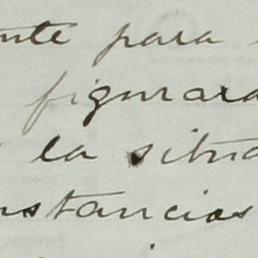 ente para
figurara
la situa
nstancias